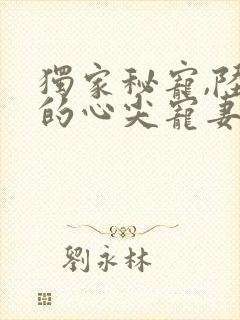 獨家秘寵,陸
的心尖寵妻
劉永林